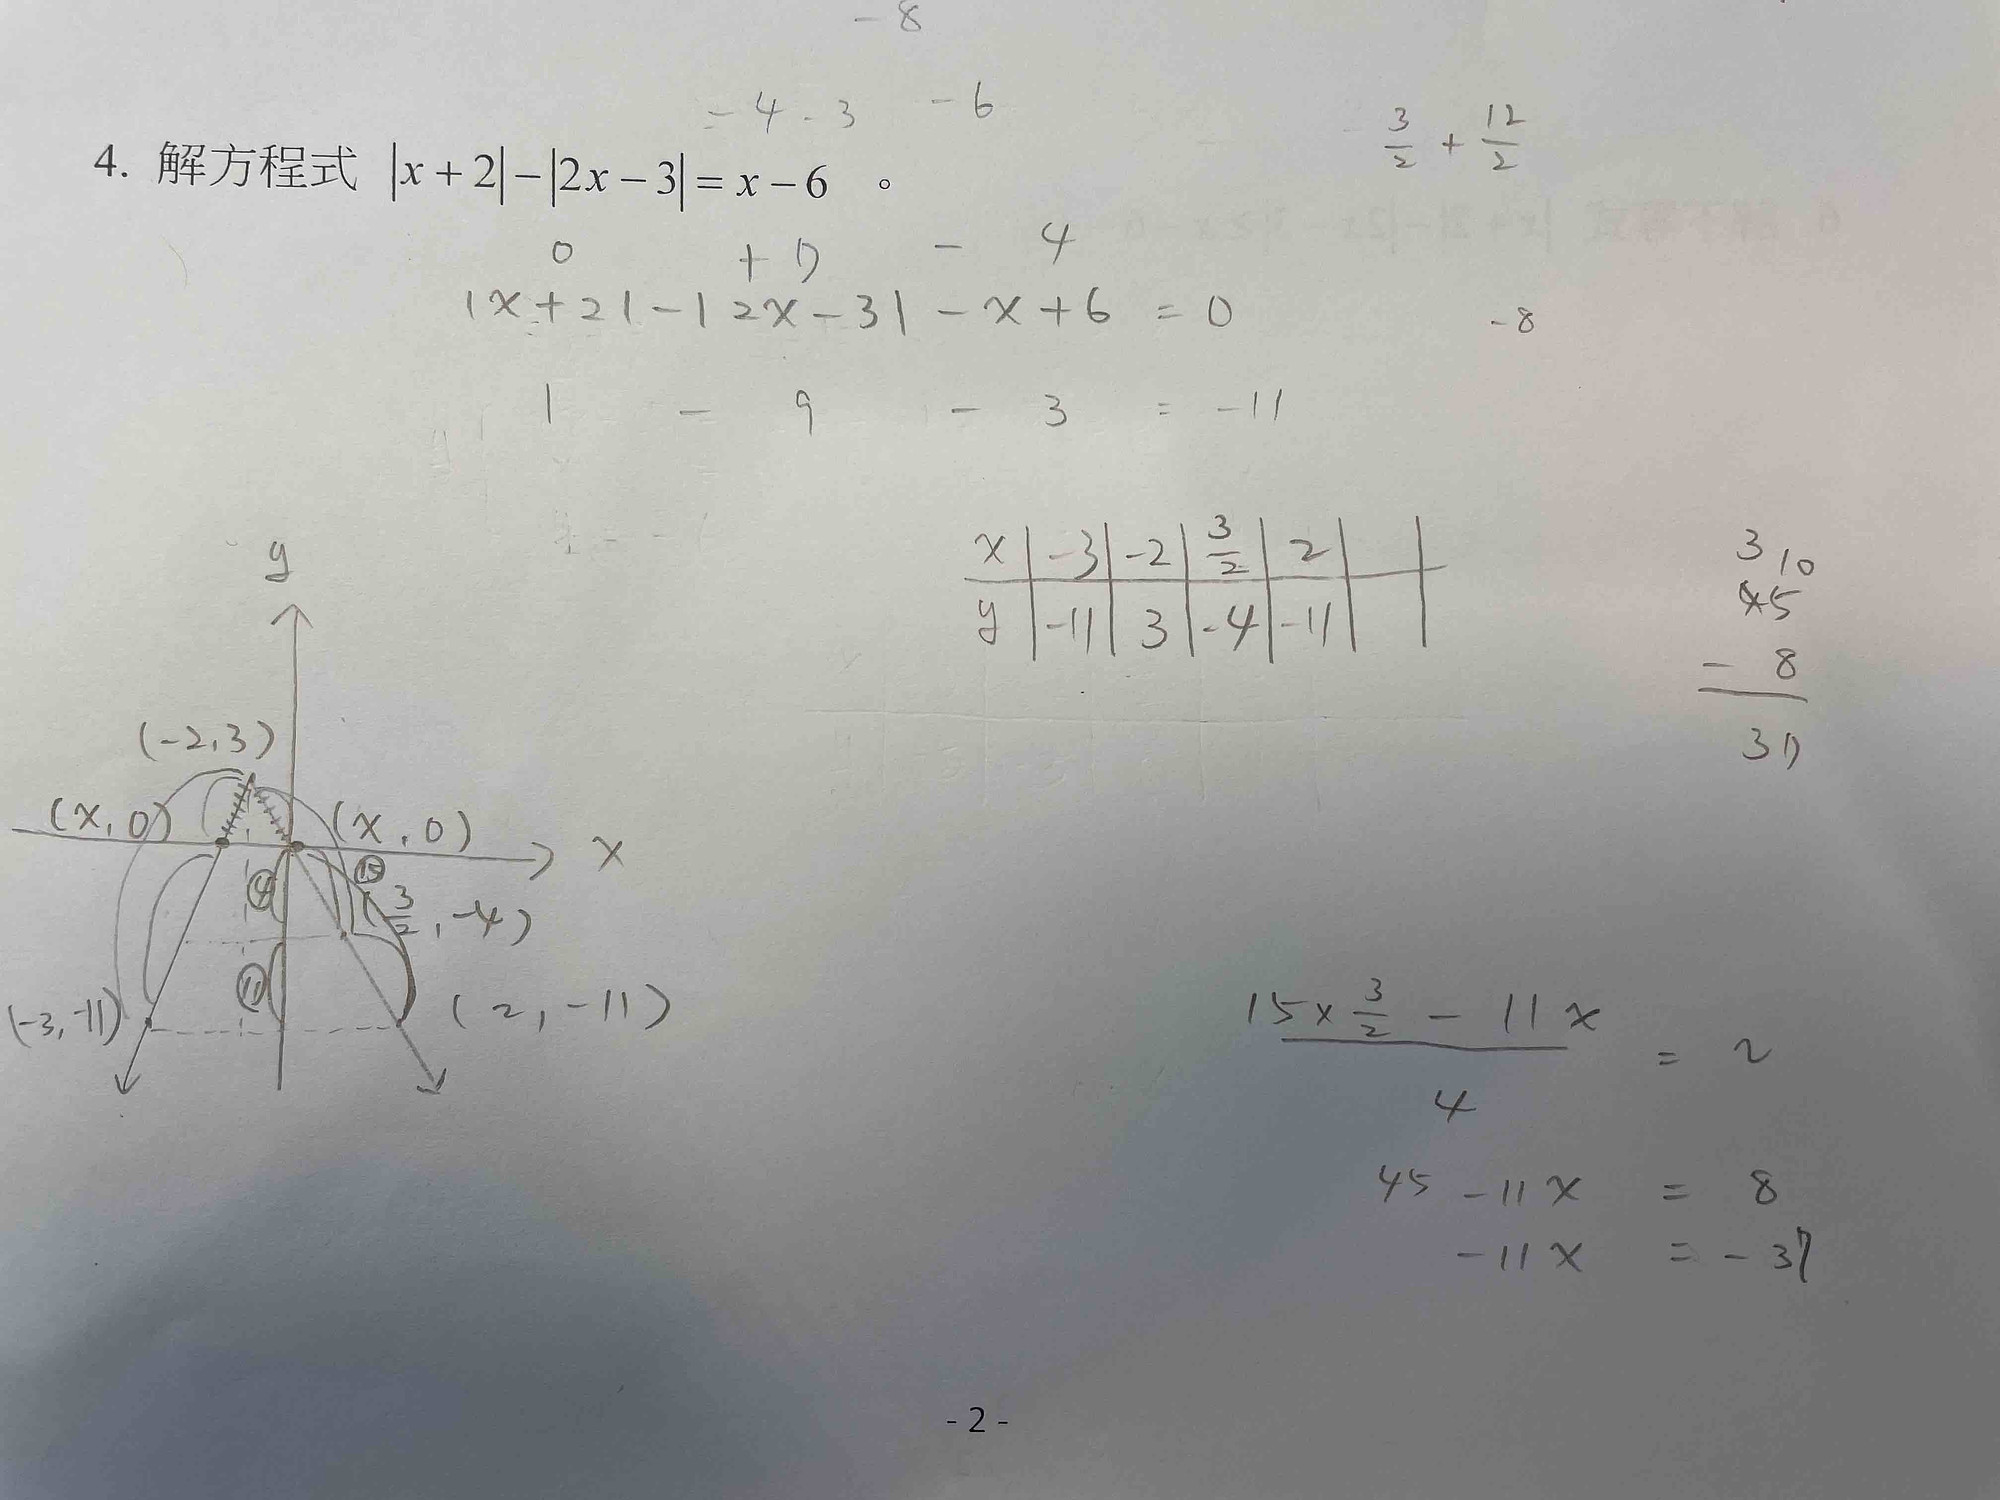 - 8
= 4 - 3 - 6
3/2 + 12/2
4. 解方程式 |x+2|-|2x-3|=x-6 。
0 + 7 - 4
|x+2|-|2x-3|-x+6 = 0
-8
1 - 9 - 3 = -11
x | -3 | -2 | 3/2 | 2 |
y | -11 | 3 | -4 | -11 |
3 10
45
- 8
37
y
(-2,3)
(x,0)
(x,0)
x
④
⑮
(3/2, -4)
⑪
(-3,-11)
(2,-11)
(15x 3/2 - 11x)/4 = 2
45 - 11x = 8
-11x = -37
- 2 -